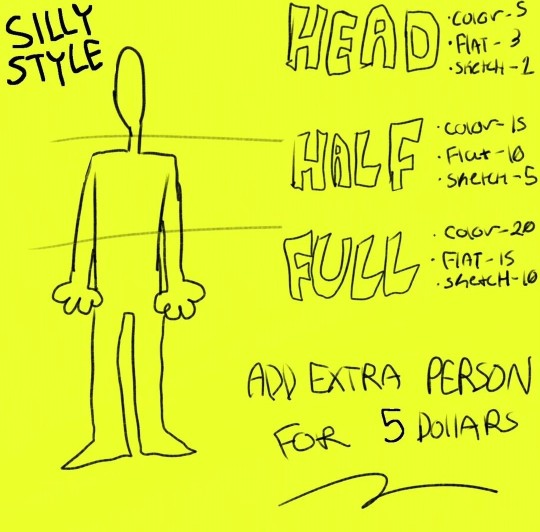 SILLY
STYLE
HEAD
• COLOR - 5
• FLAT - 3
• SKETCH - 2
HALF
• COLOR - 15
• FLAT - 10
• SKETCH - 5
FULL
• COLOR - 20
• FLAT - 15
• SKETCH - 10
ADD EXTRA PERSON
FOR 5 DOLLARS